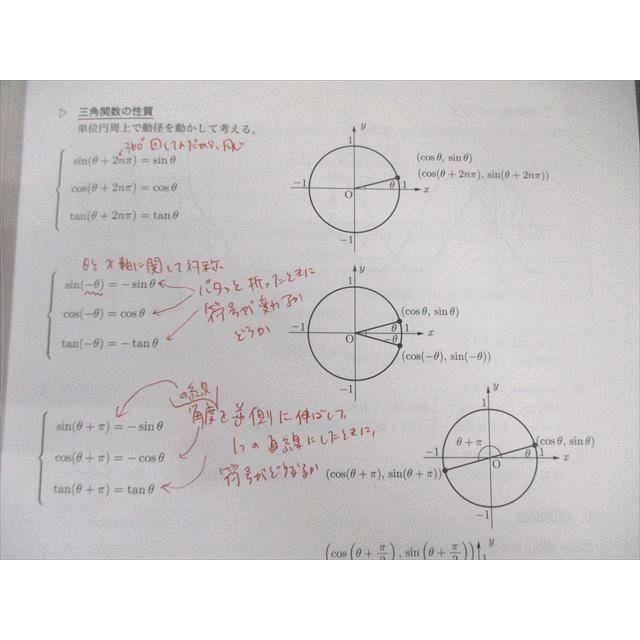 ▷ 三角関数の性質
単位円周上で動径を動かして考える。
360°回してんだから、同じ
sin(θ + 2nπ) = sin θ
cos(θ + 2nπ) = cos θ
tan(θ + 2nπ) = tan θ
y
1
(cos θ, sin θ)
(cos(θ + 2nπ), sin(θ + 2nπ))
−1
O
θ
1
x
−1
θとx軸に関して対称。
sin(−θ) = − sin θ
cos(−θ) = cos θ
tan(−θ) = − tan θ
パタッと折ったときに
符号が変わるか
どうか
y
1
(cos θ, sin θ)
−1
O
θ
−θ
1
x
(cos(−θ), sin(−θ))
−1
の線
角度を逆側に伸ばして、
1つの直線にしたときに、
符号がどうなるか
sin(θ + π) = − sin θ
cos(θ + π) = − cos θ
tan(θ + π) = tan θ
y
1
θ + π
(cos θ, sin θ)
−1
O
θ
1
x
(cos(θ + π), sin(θ + π))
−1
(cos(θ + π/2), sin(θ + π/2))
y
1